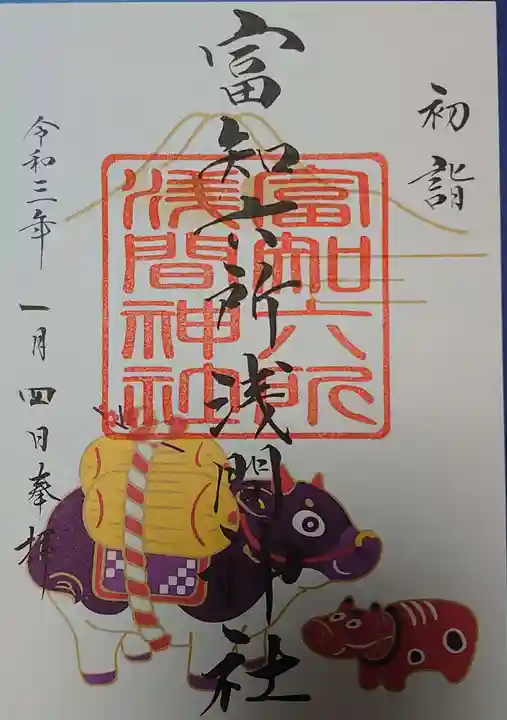 初詣
富知六所浅間神社
富知六所
浅間神社
令和三年 一月 四日 奉拝